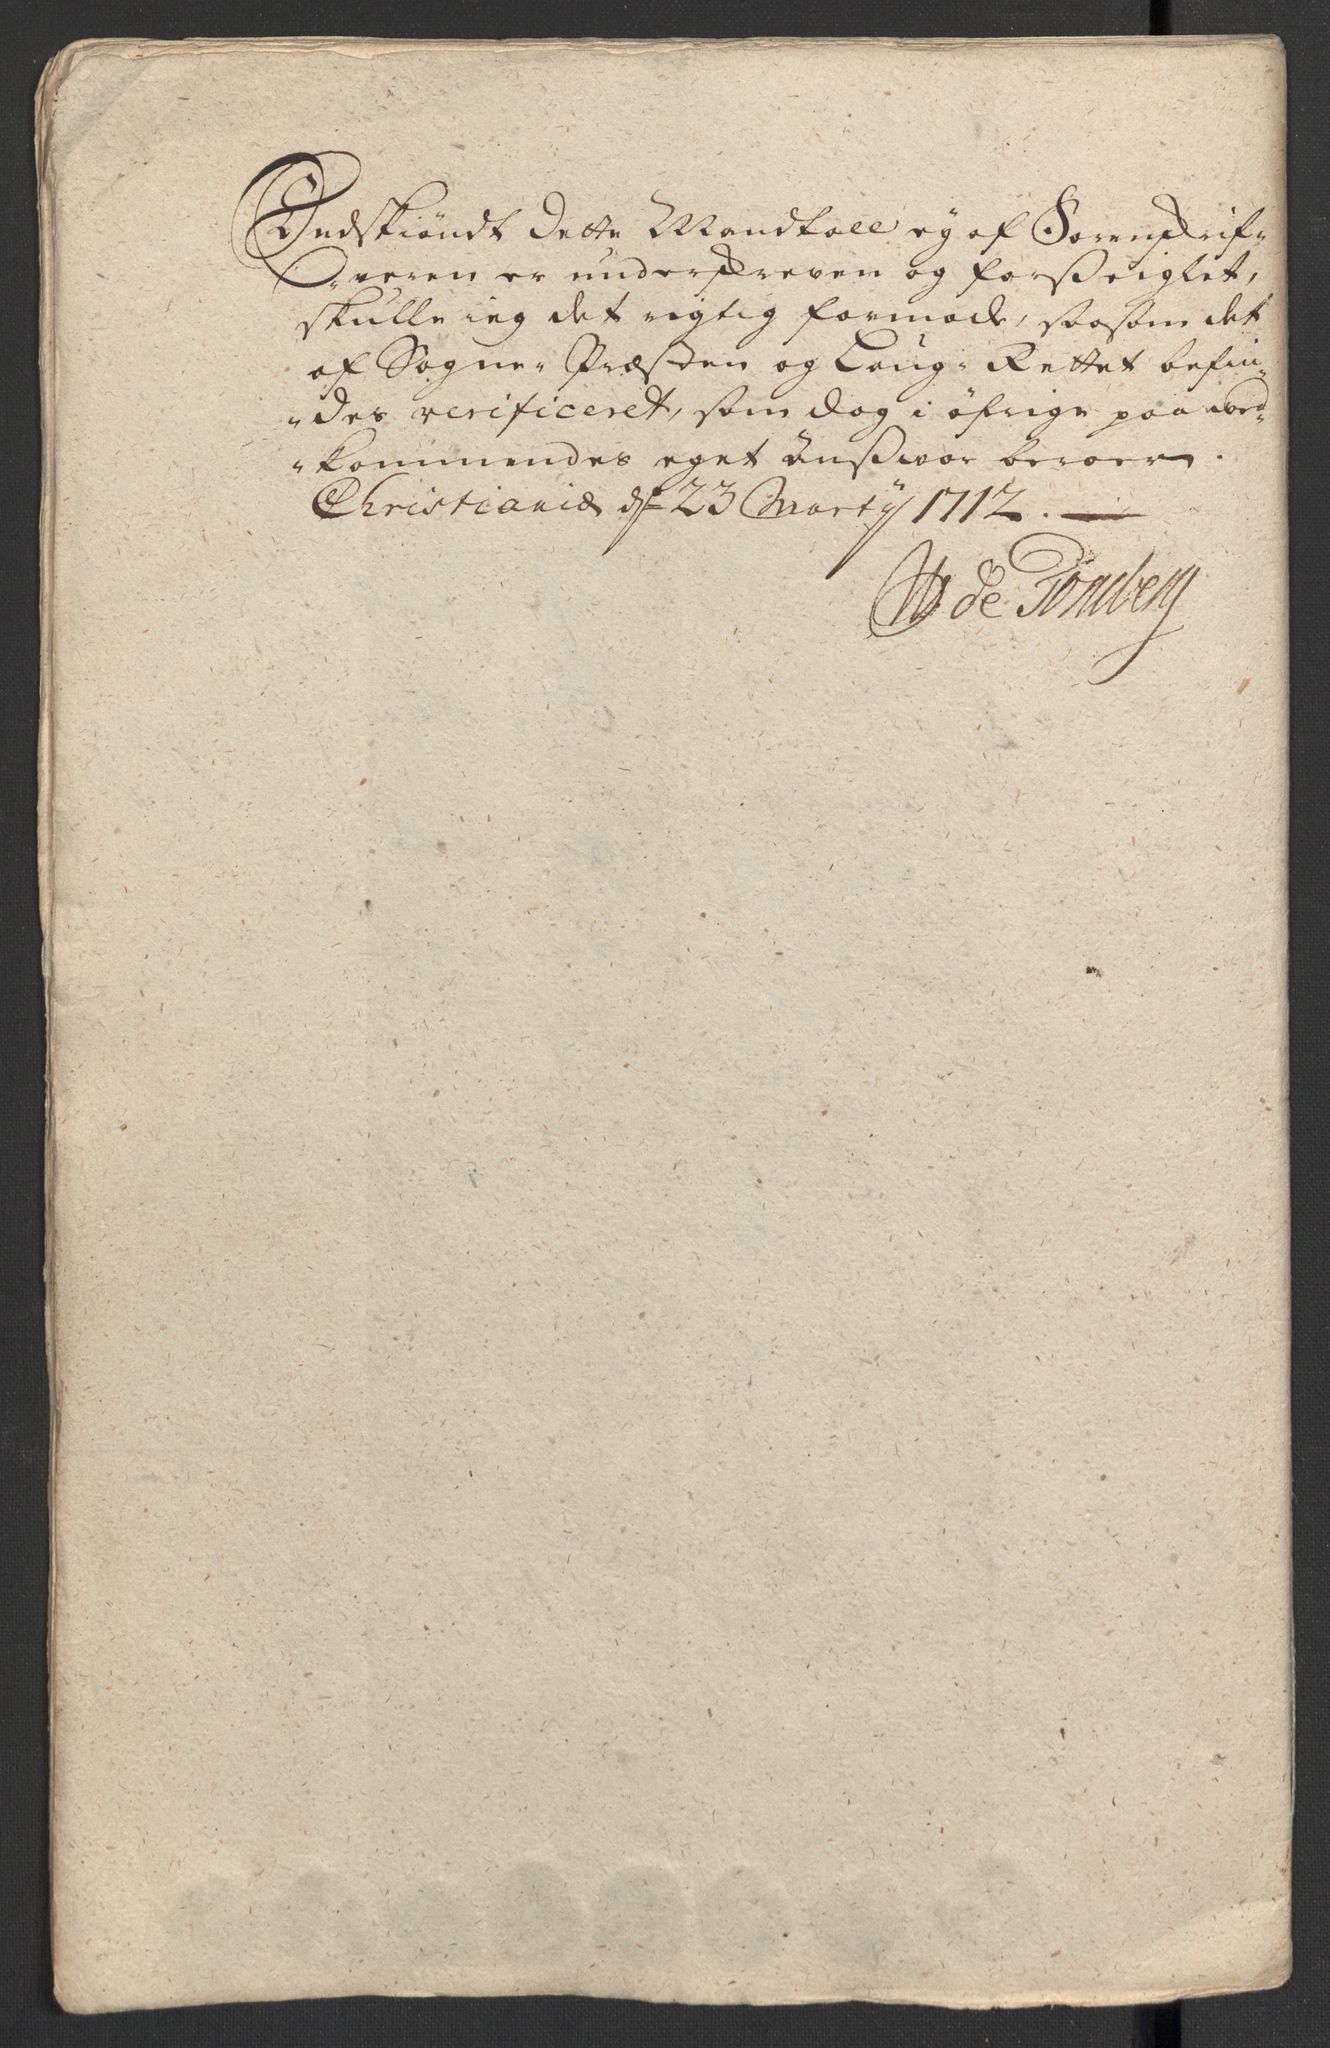 Endskiöndt dette Mandtall ey af Sorenskrif-
-veren er underskreven og forseiglet,
skulle ieg det rigtig formode, saasom det
af Sogne-Præsten og Laug-Rettet befin-
-des verificeret, som dog i öfrige paa ved-
-kommendes eget answar beroer.
Christiania d 23 Marty 1712.
de Tonsberg